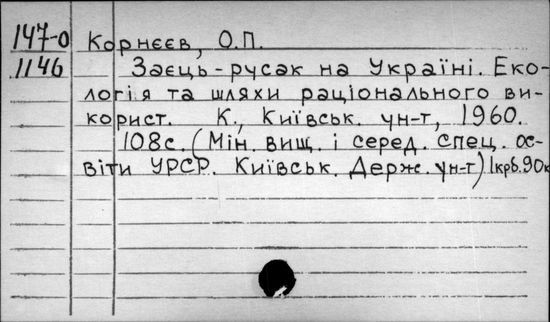 147-0 Корнєєв, О.П.
1146 Заєць-русак на Україні. Еко-
логія та шляхи раціонального ви-
корист. К., Київськ. ун-т, 1960.
108с. (Мін. вищ. і серед. спец. ос-
віти УРСР. Київськ. Держ. ун-т) 1крб.90к